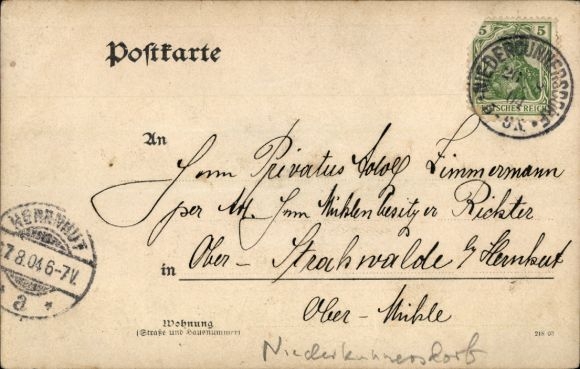 Postkarte
5 5
DEUTSCHES REICH
NIEDERCUNNERSDORF
An
Herrn Privatus Adolf Zimmermann
per Adr. Herrn Mühlenbesitzer Richter
in Ober-Strahwalde b/ Herrnhut
Ober-Mühle
HERRNHUT
7.8.04 6-7V.
a
Wohnung
(Straße und Hausnummer)
218 03
Niederkunnersdorf